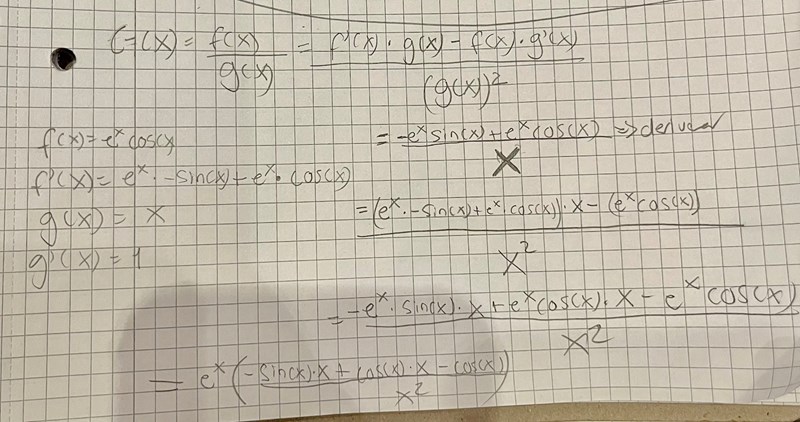 G(x) = f(x)/g(x) = f'(x) · g(x) - f(x) · g'(x)/(g(x))²
f(x) = eˣ cos(x)
= -eˣ sin(x) + eˣ cos(x)/x => deriver
f'(x) = eˣ · -sin(x) + eˣ · cos(x)
g(x) = x
= (eˣ · -sin(x) + eˣ · cos(x)) · x - (eˣ cos(x))/x²
g'(x) = 1
= -eˣ · sin(x) · x + eˣ cos(x) · x - eˣ cos(x)/x²
= eˣ (-sin(x) · x + cos(x) · x - cos(x)/x²)